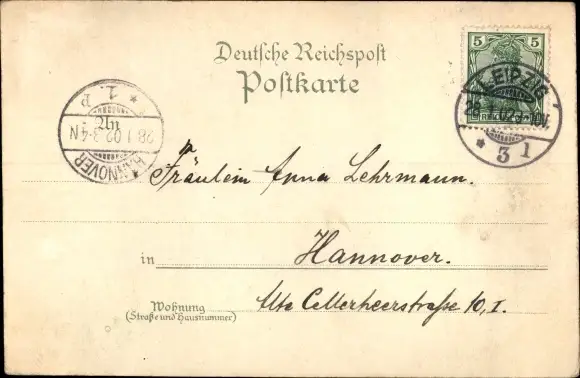 Deutsche Reichspost
Postkarte
5 5
LEIPZIG
3 1
1. p
28 1 02 3-4 N
HANNOVER
Fräulein Anna Lehrmann.
in Hannover.
Wohnung
(Straße und Hausnummer)
Alte Cellerheerstraße 10, I.